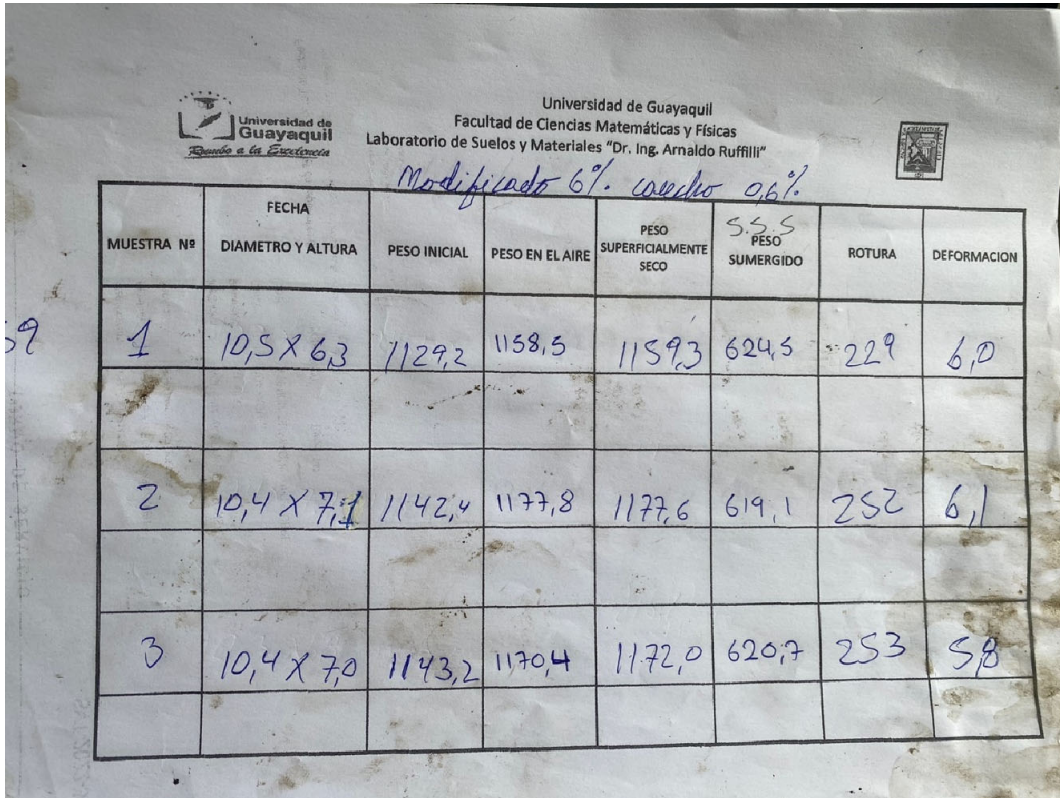 Universidad de
Guayaquil
Rumbo a la Excelencia
Universidad de Guayaquil
Facultad de Ciencias Matemáticas y Físicas
Laboratorio de Suelos y Materiales "Dr. Ing. Arnaldo Ruffilli"
Modificado 6% caucho 0,6%
MUESTRA Nº FECHA DIAMETRO Y ALTURA PESO INICIAL PESO EN EL AIRE PESO SUPERFICIALMENTE SECO S.S.S PESO SUMERGIDO ROTURA DEFORMACION
59
1 10,5 X 6,3 1129,2 1158,5 1159,3 624,5 229 6,0
2 10,4 X 7,1 1142,4 1177,8 1177,6 619,1 252 6,1
3 10,4 X 7,0 1143,2 1170,4 1172,0 620,7 253 5,8